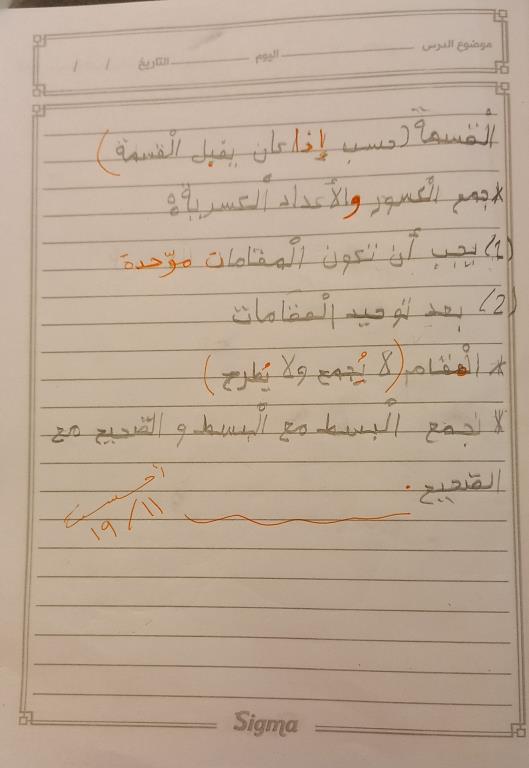 موضوع الدرس اليوم التاريخ / /
القسمة (حسب إذا كان يقبل القسمة)
* جمع الكسور والأعداد الكسرية:
(1) يجب أن تكون المقامات موّحدة
(2) بعد توحيد المقامات
* المقام (لا يُجمع ولا يُطرح)
* نجمع البسط مع البسط و الصحيح مع
الصحيح.
أحسنت
١٩/١١
Sigma